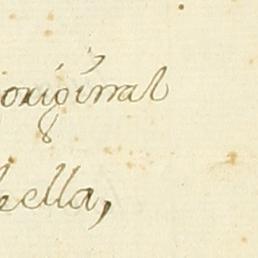 original
ella,